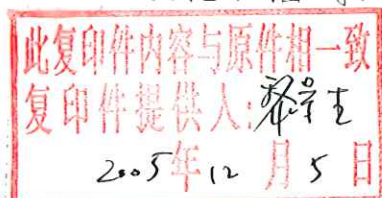 此复印件内容与原件相一致
复印件提供人:
2005年12月5日